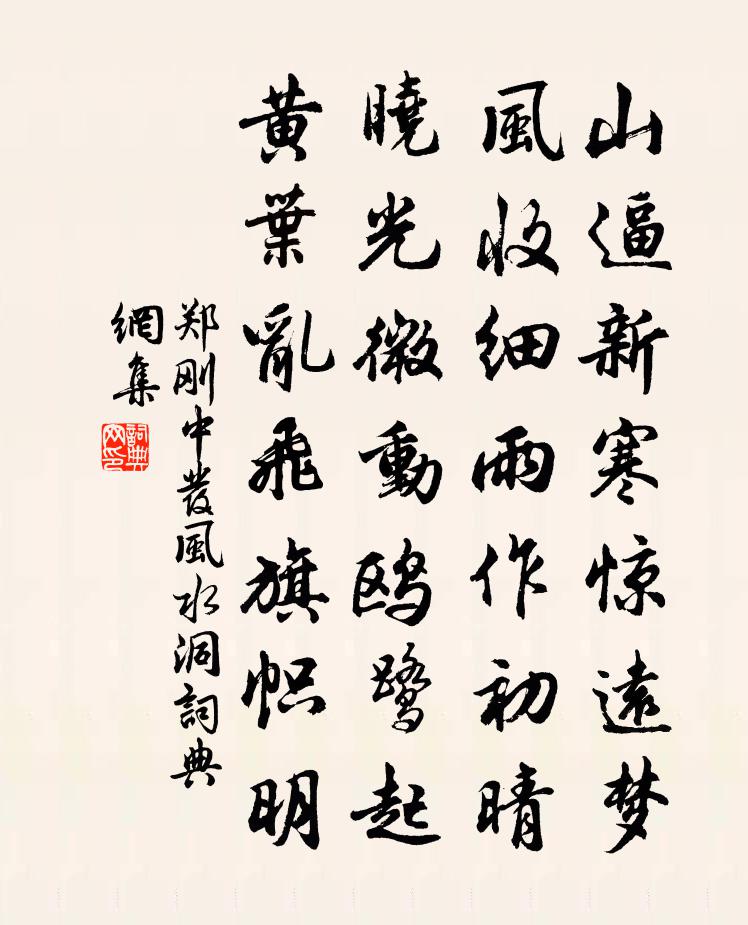 山逼新寒惊遠梦
風收细雨作初晴
曉光微動鸥鹭起
黄葉亂飛旗帜明
郑刚中發風水洞詞典
網集
詞典
网印